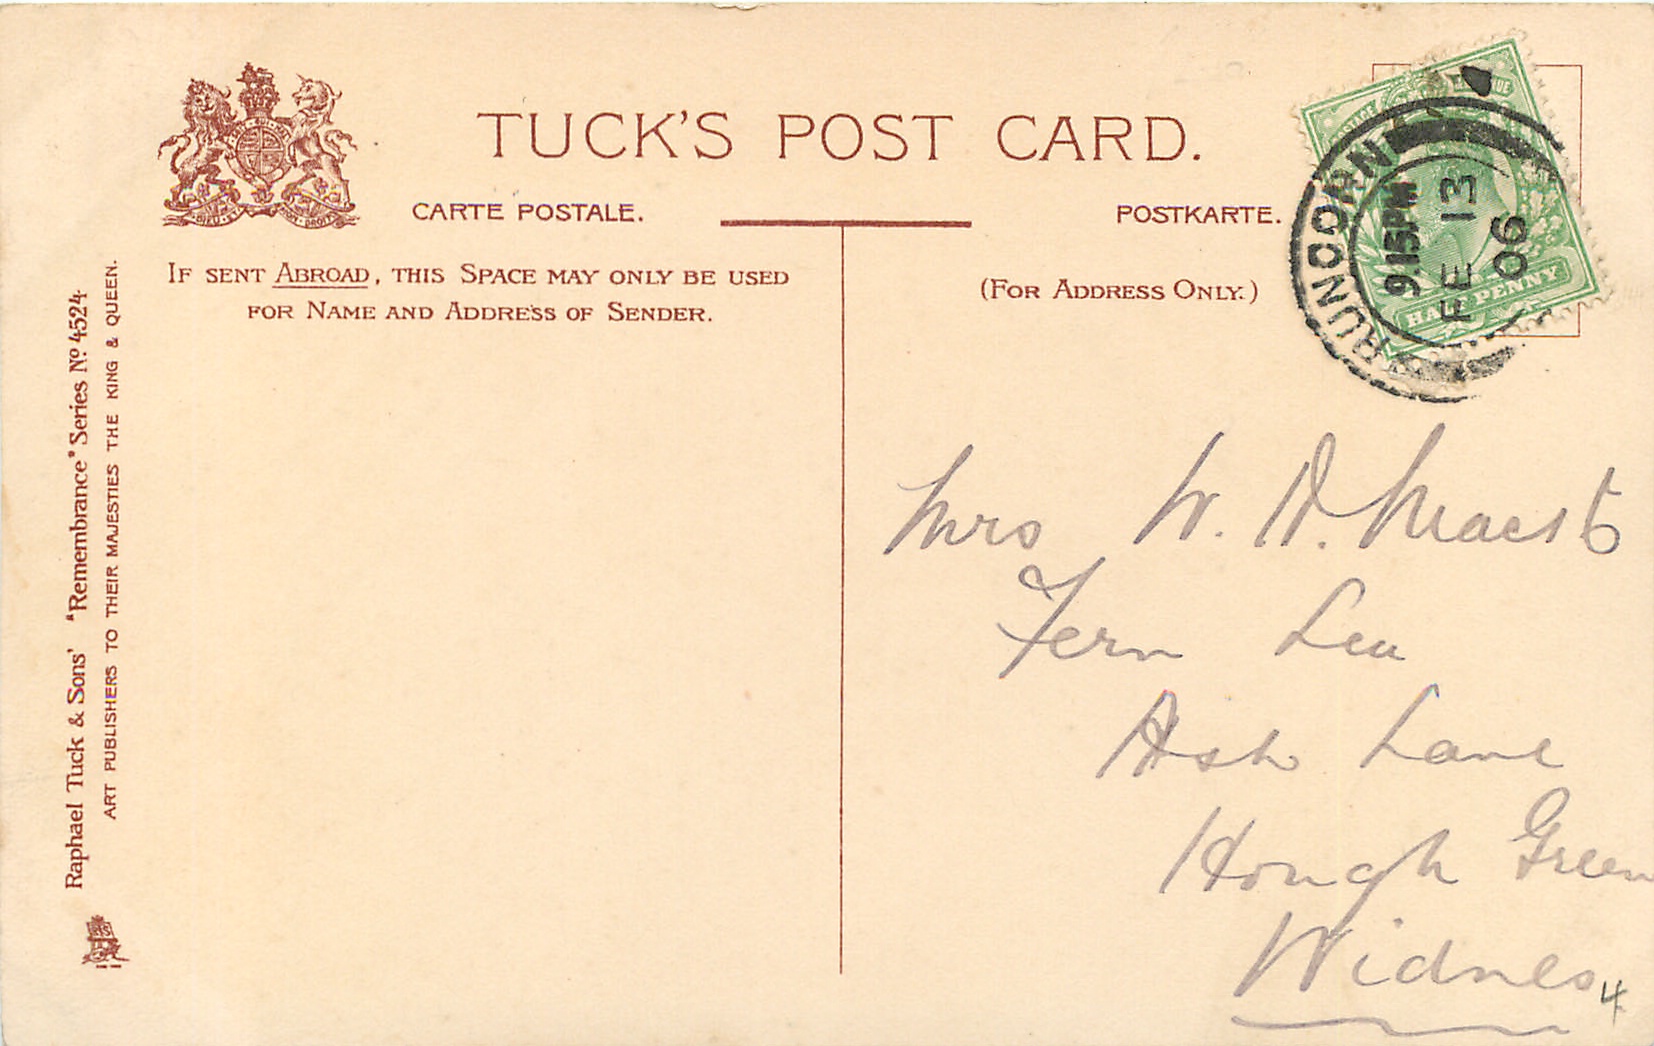 TUCK'S POST CARD.
CARTE POSTALE.
POSTKARTE.
IF SENT ABROAD, THIS SPACE MAY ONLY BE USED
FOR NAME AND ADDRESS OF SENDER.
(FOR ADDRESS ONLY.)
Raphael Tuck & Sons' "Remembrance" Series No. 4524.
ART PUBLISHERS TO THEIR MAJESTIES THE KING & QUEEN.
RUNCORN
9.15PM
FE 13
06
HALF PENNY
Mrs W. H.
Fern Lea
Ash Lane
Hough Green
Widnes
4